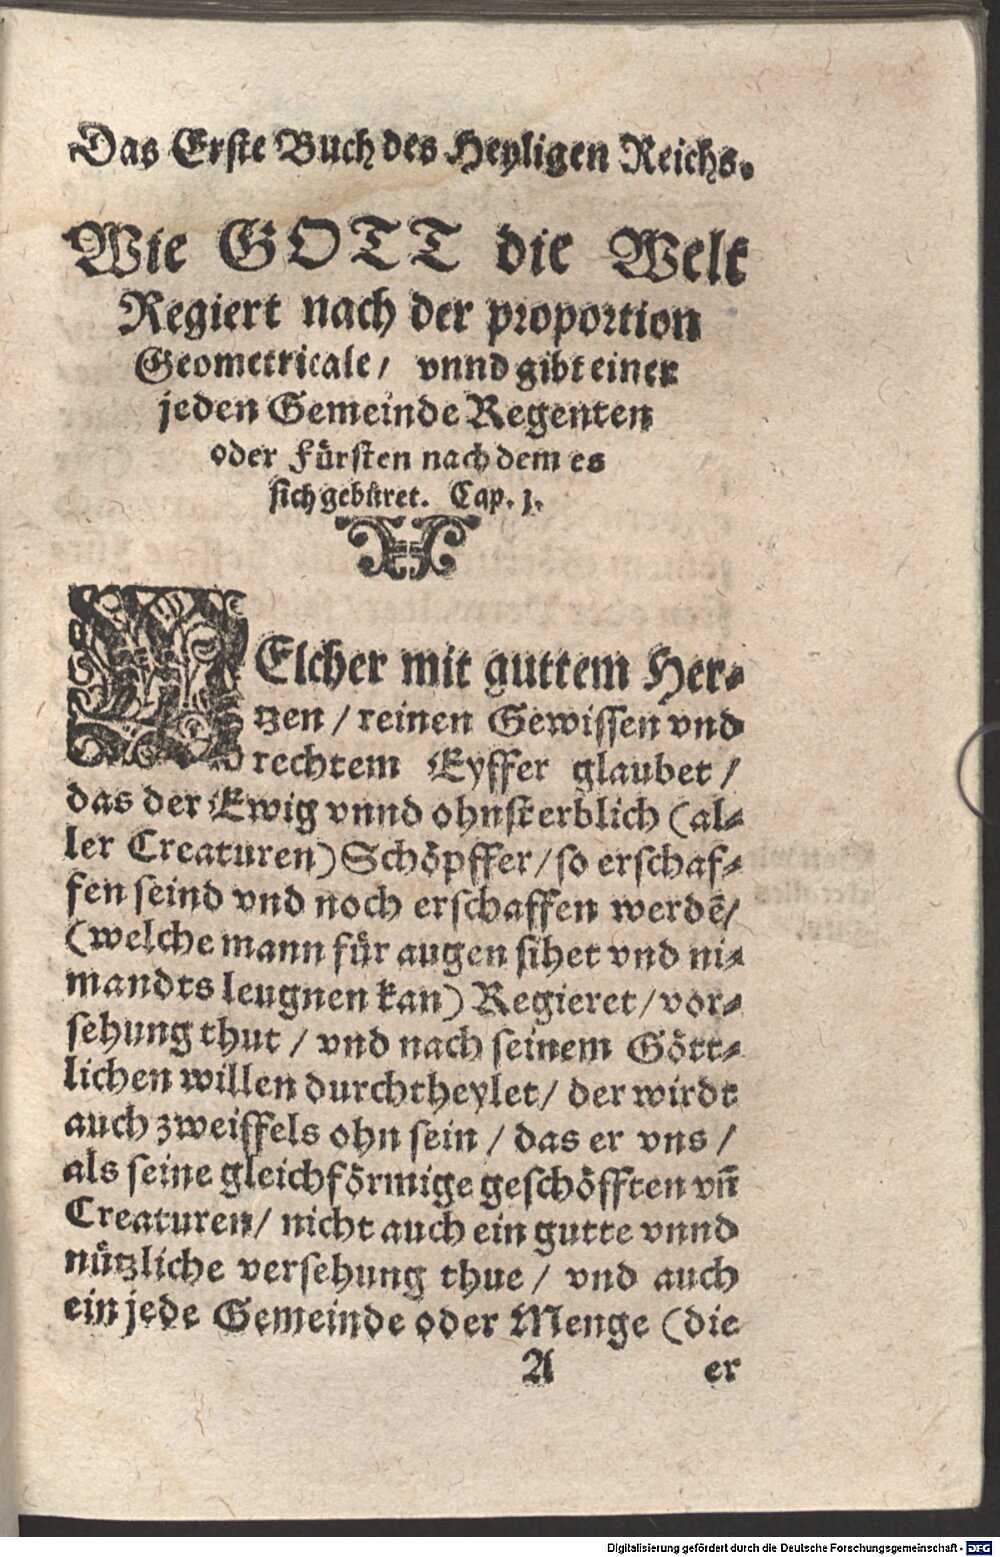 Das Erste Buch des Heyligen Reichs.
Wie GOTT die Welt
Regiert nach der proportion
Geometricale/ vnnd gibt einer
jeden Gemeinde Regenten
oder Fürsten nach dem es
sich gebüret. Cap. j.
WElcher mit guttem Her⸗
tzen / reinen Gewissen vnd
rechtem Eyffer glaubet /
das der Ewig vnnd ohnsterblich (al⸗
ler Creaturen) Schöpffer / so erschaf⸗
fen seind vnd noch erschaffen werdē/
(welche mann für augen sihet vnd ni⸗
mandts leugnen kan) Regieret / vor⸗
sehung thut / vnd nach seinem Gött⸗
lichen willen durchtheylet / der wirdt
auch zweiffels ohn sein / das er vns /
als seine gleichförmige geschöfften vn̄
Creaturen / nicht auch ein gutte vnnd
nützliche versehung thue / vnd auch
ein jede Gemeinde oder Menge (die
A er
Digitalisierung gefördert durch die Deutsche Forschungsgemeinschaft - DFG